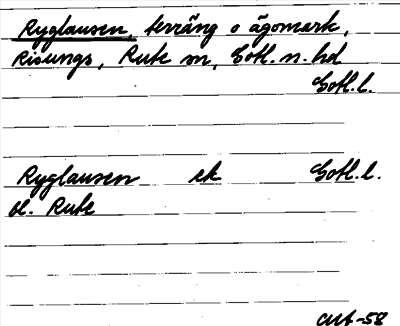 Ryglausen, terräng o ägomark,
Risungs, Rute sn, Gotl. n. hd
Gotl. l.
Ryglausen ek Gotl. l.
bl. Rute
CUA-58